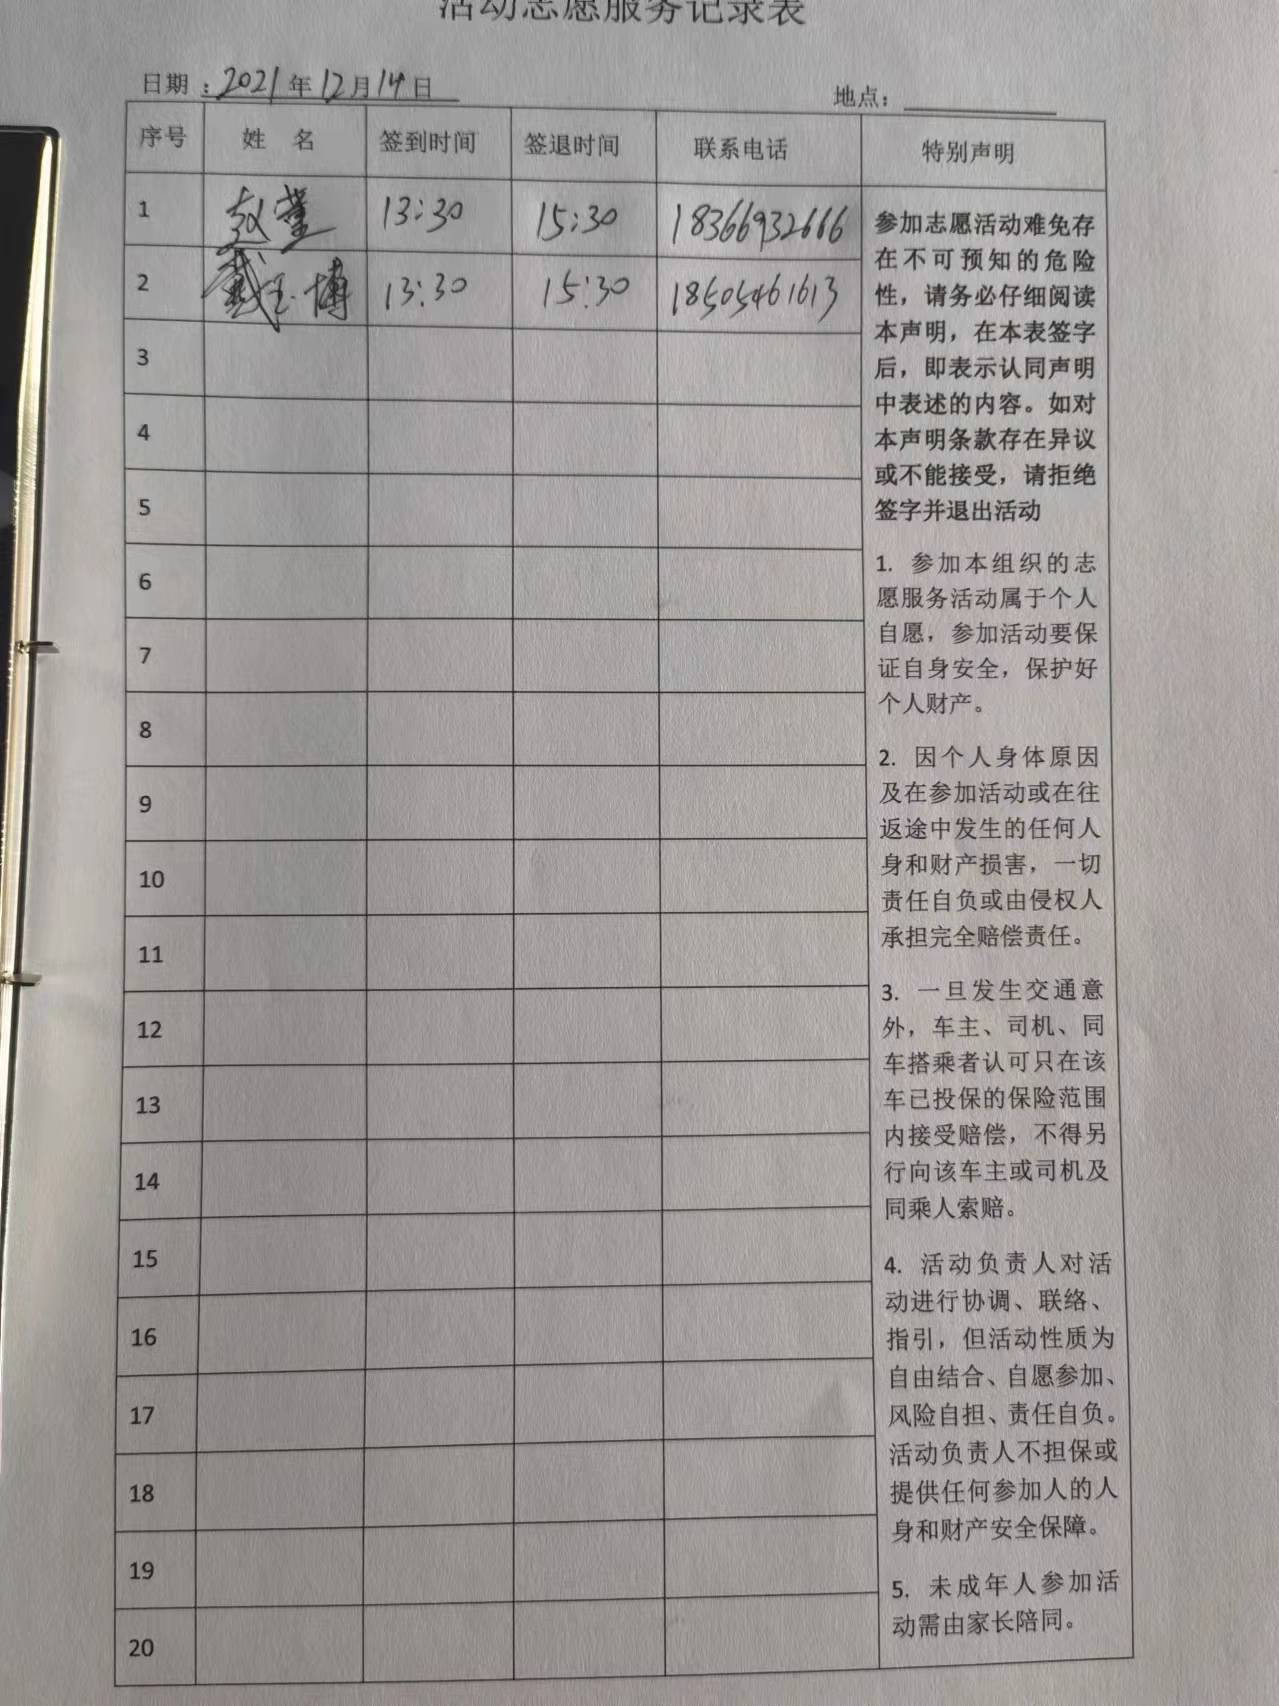 活动志愿服务记录表
日期：2021年12月14日
地点：
序号 姓 名 签到时间 签退时间 联系电话 特别声明
1 赵莹 13:30 15:30 18366932666
2 戴玉博 13:30 15:30 18505461613
3
4
5
6
7
8
9
10
11
12
13
14
15
16
17
18
19
20
参加志愿活动难免存
在不可预知的危险
性，请务必仔细阅读
本声明，在本表签字
后，即表示认同声明
中表述的内容。如对
本声明条款存在异议
或不能接受，请拒绝
签字并退出活动
1. 参加本组织的志
愿服务活动属于个人
自愿，参加活动要保
证自身安全，保护好
个人财产。
2. 因个人身体原因
及在参加活动或在往
返途中发生的任何人
身和财产损害，一切
责任自负或由侵权人
承担完全赔偿责任。
3. 一旦发生交通意
外，车主、司机、同
车搭乘者认可只在该
车已投保的保险范围
内接受赔偿，不得另
行向该车主或司机及
同乘人索赔。
4. 活动负责人对活
动进行协调、联络、
指引，但活动性质为
自由结合、自愿参加、
风险自担、责任自负。
活动负责人不担保或
提供任何参加人的人
身和财产安全保障。
5. 未成年人参加活
动需由家长陪同。